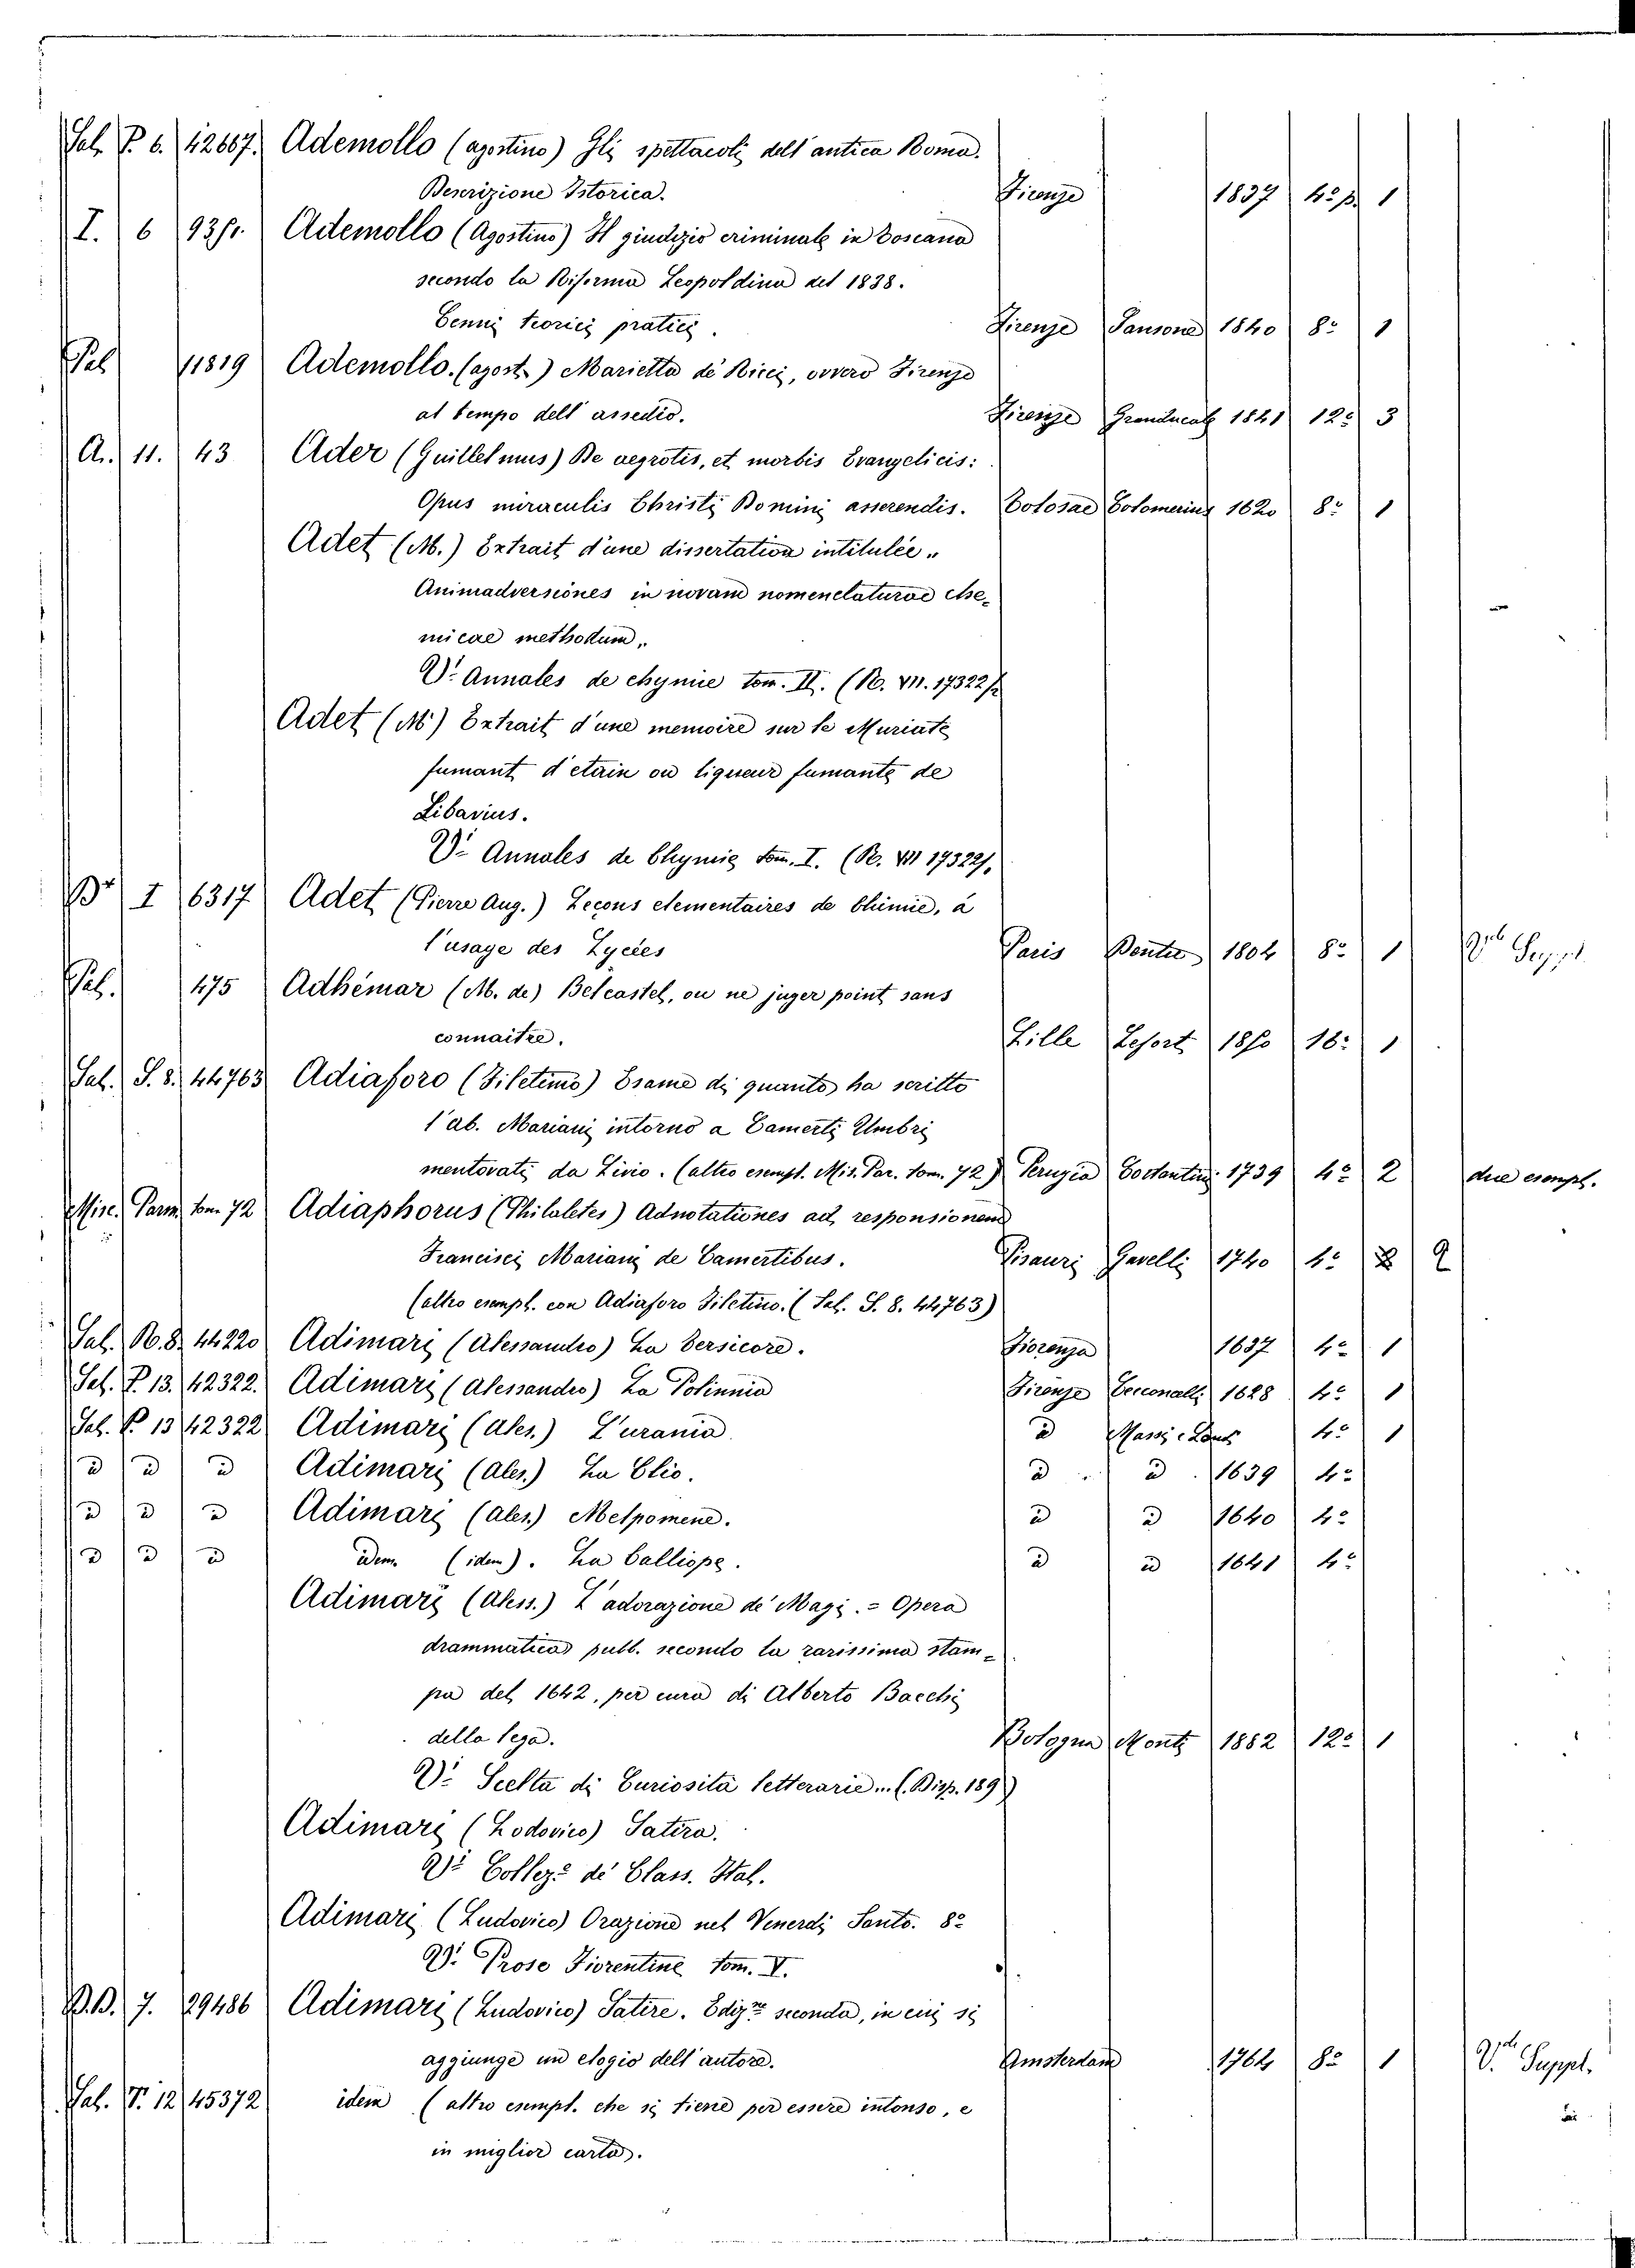 Sal. P. 6. 42667. Ademollo (agostino) Gli spettacoli dell' antica Roma.
Descrizione Istorica. Firenze 1837 4º p. 1
I. 6 Ademollo (Agostino) Il giudizio criminale in Toscana
secondo la Riforma Leopoldina del 1838.
Cenni teorici pratici. Firenze Sansone 1840 8º 1
Pal 11819 Ademollo. (agost.) Marietta de' Ricci, ovvero Firenze
al tempo dell' assedio. Firenze Granducale 1841 12º 3
A. 11. 43 Ader (Guillelmus) De aegrotis, et morbis Evangelicis:
Opus miraculis Christi Domini asserendis. Tolosae Colomerius 1620 8º 1
Adet (M.) Extrait d'une dissertation intitulée "
Animadversiones in novam nomenclaturae che-
micae methodum "
V. Annales de chymie tom. II. (R. VII. 17322)
Adet (M) Extrait d'une memoire sur le Muriate
fumant d'etain ou liqueur fumante de
Libavius.
V. Annales de Chymie tom. I. (R. VII 17322).
I 6317 Adet (Pierre Aug.) Leçons elementaires de Chimie, à
l'usage des Lycées Paris Dentu 1804 8º 1 Suppl.
Pal. 475 Adhémar (M. de) Belcastel, ou ne juger point sans
connaitre. Lille Lefort 1850 16º 1
Sal. S. 8. 44763 Adiaforo (Filetimo) Esame di quanto ha scritto
l'ab. Mariani intorno a Camerti Umbri
mentovati da Livio. (altro esempl. Mis. Par. tom. 72) Perugia Costantini 1739 4º 2 due esempl.
Misc. Parm. tom. 72 Adiaphorus (Philaletes) Adnotationes ad responsionem
Francisci Mariani de Camertibus. Pisauri Gavelli 1740 4º 2
(altro esempl. con Adiaforo Filetino. (Sal. S. 8. 44763)
Sal. R. 8. 44220 Adimari (Alessandro) La Tersicore. Fiorenza 1637 4º 1
Sal. P. 13. 42322. Adimari (Alessandro) La Polinnia Firenze Cecconcelli 1628 4º 1
Sal. P. 13 42322 Adimari (Ales.) L'urania d Massi e Landi 4º 1
d d d Adimari (Ales.) La Clio. d d 1639 4º
d d d Adimari (Ales.) Melpomene. d d 1640 4º
d d d idem. (idem). La Calliope. d d 1641 4º
Adimari (Aless.) L'adorazione de' Magi. = Opera
drammatica pubb. secondo la rarissima stam-
pa del 1642, per cura di Alberto Bacchi
della Lega. Bologna Monti 1882 12º 1
V. Scelta di Curiosità letterarie... (Disp. 189)
Adimari (Lodovico) Satira.
V. Collezº de' Class. Ital.
Adimari (Ludovico) Orazione nel Venerdi Santo. 8º
V. Prose Fiorentine tom. V.
P.B. 7. 29486 Adimari (Ludovico) Satire. Edizne seconda, in cui si
aggiunge un elogio dell' autore. Amsterdam 1764 8º 1 V. Suppl.
Sal. V. 12 45372 idem (altro esempl. che si tiene per essere intonso, e
in miglior carta).